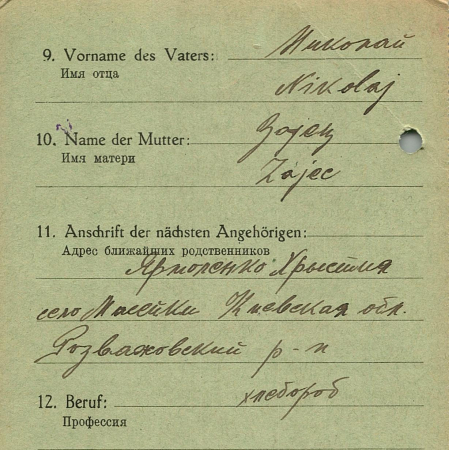 Николай
9. Vorname des Vaters:
Имя отца
Nikolaj
10. Name der Mutter: Заѣц
Имя матери
Zajec
11. Anschrift der nächsten Angehörigen:
Адрес ближайших родственников
Ярмоленко Хрыстия
село Мосейки Киевская обл.
Розважовский р-н
12. Beruf: хлебороб
Профессия